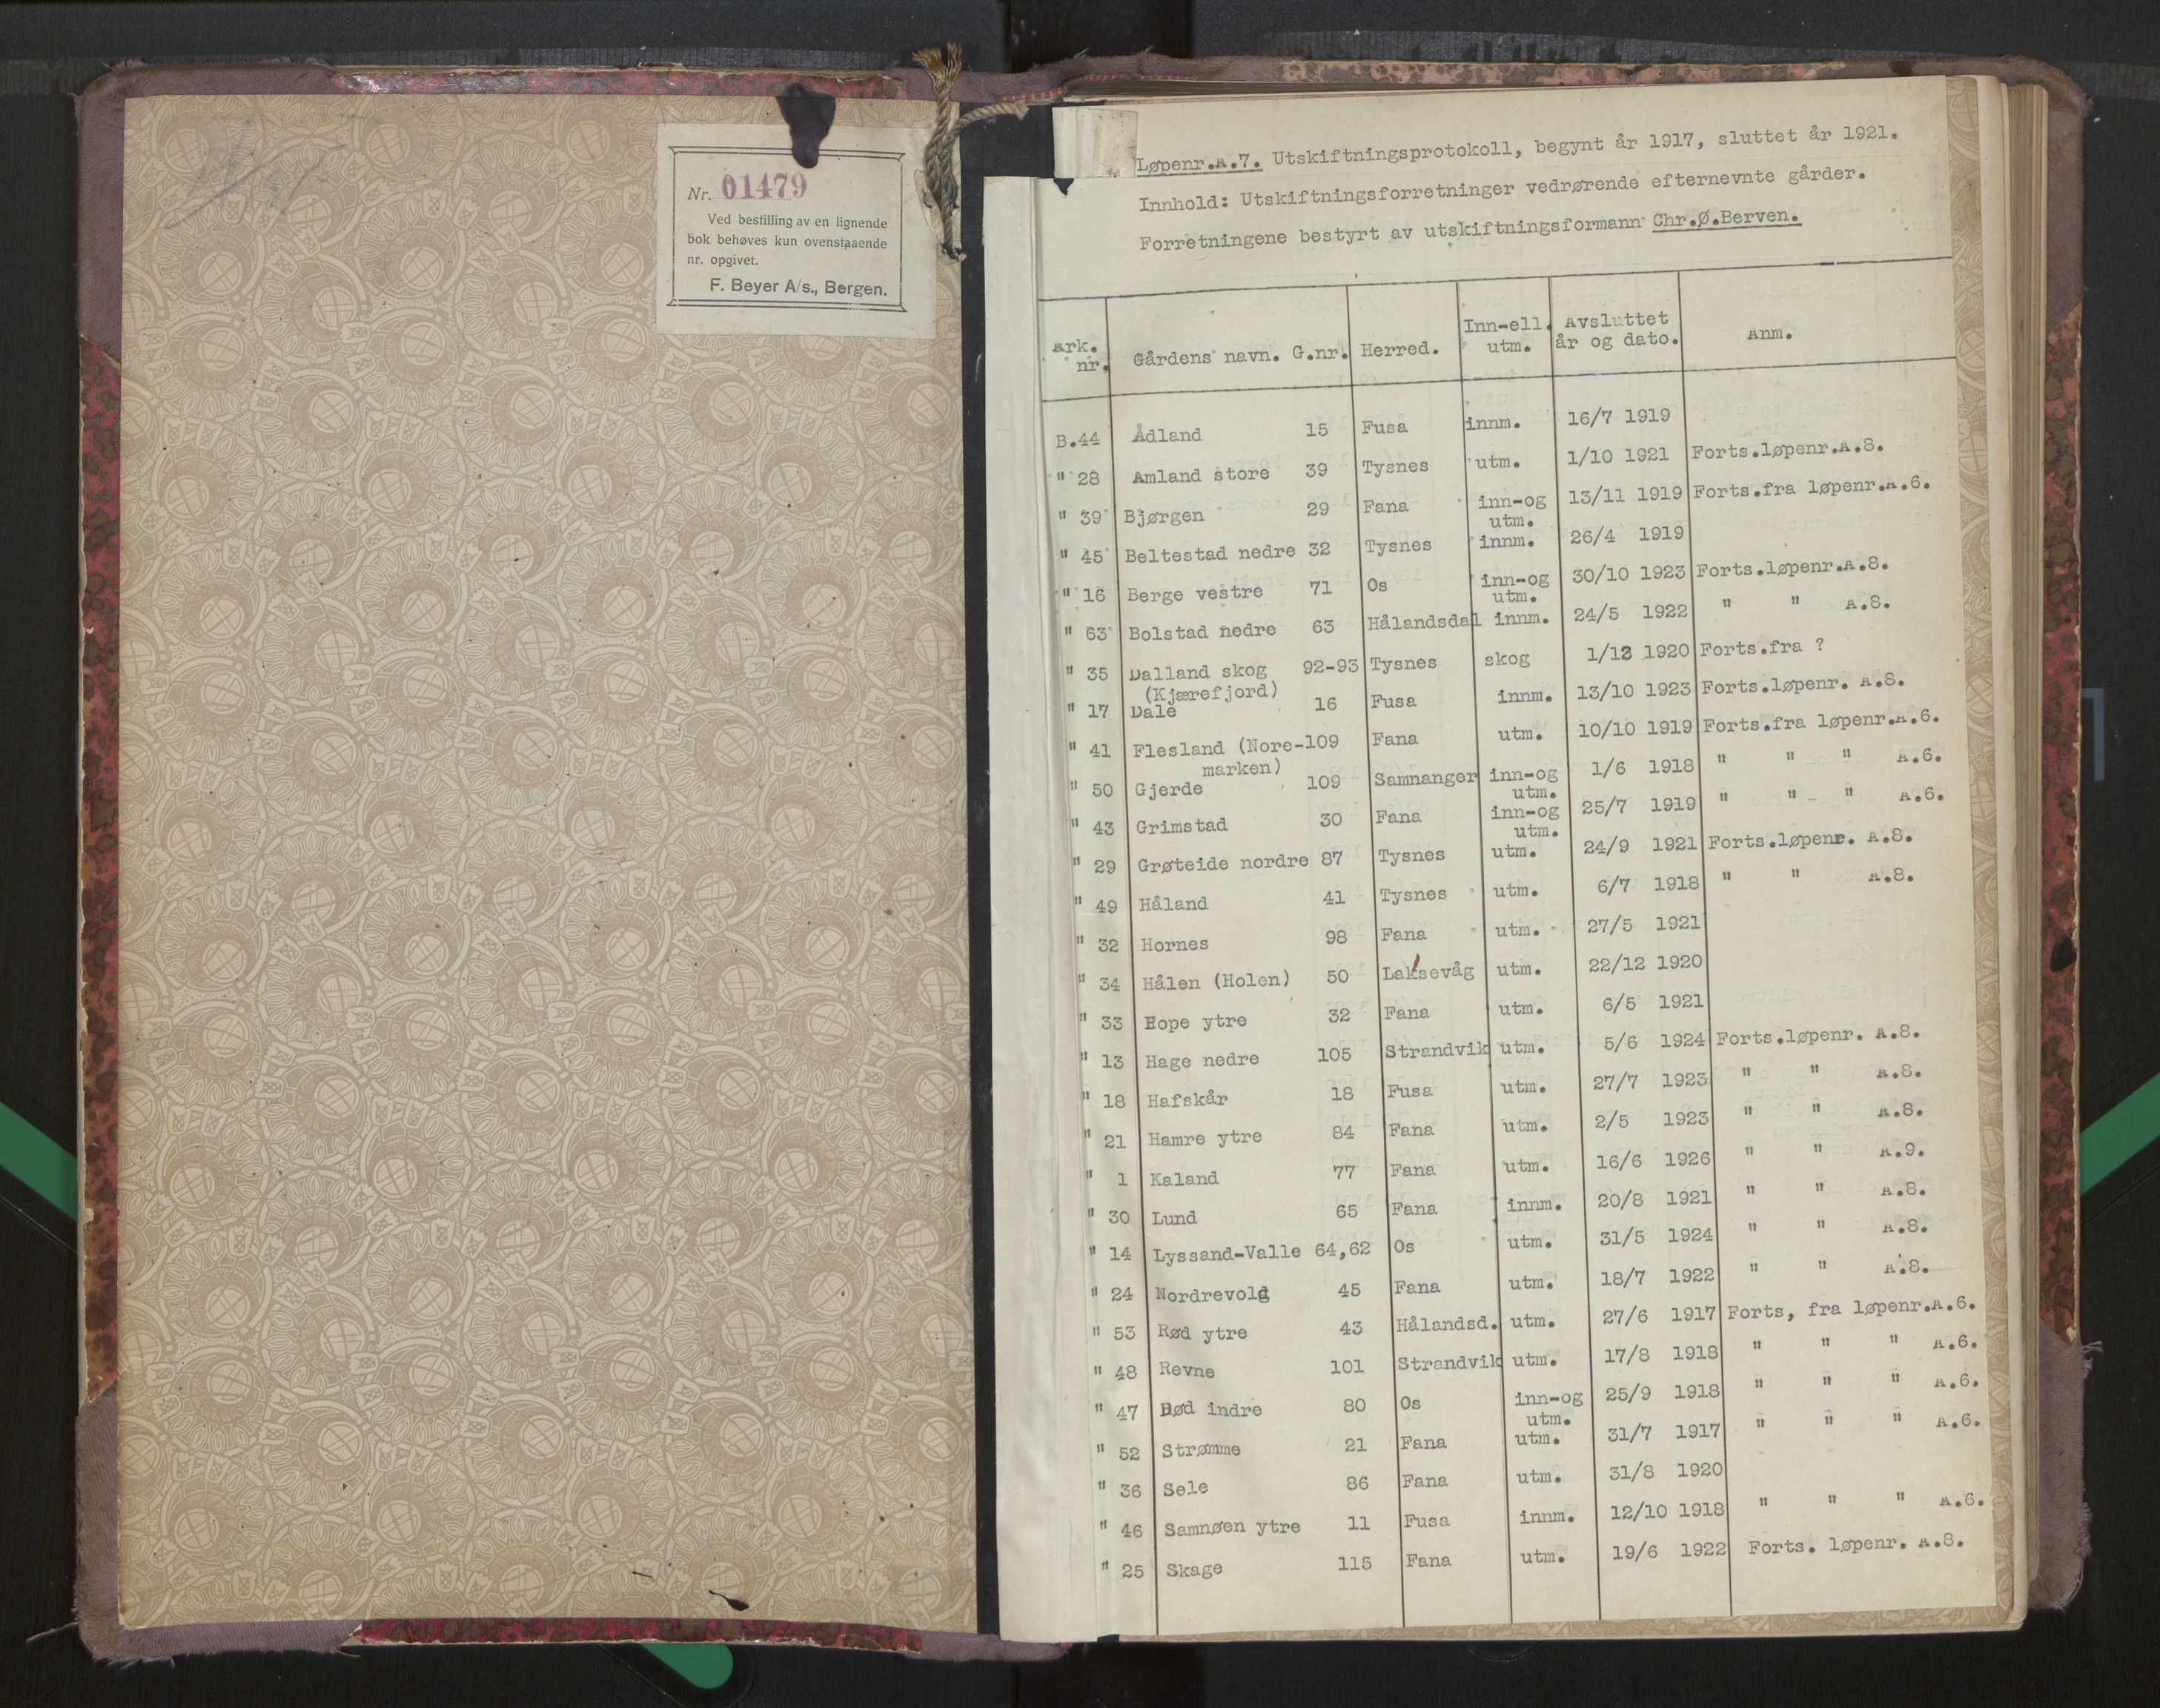 Nr. 01479
Ved bestilling av en lignende
bok behøves kun ovenstaaende
nr. opgivet.
F. Beyer A/s., Bergen.
Løpenr.A.7. Utskiftningsprotokoll, begynt år 1917, sluttet år 1921.
Innhold: Utskiftningsforretninger vedrørende efternevnte gårder.
Forretningene bestyrt av utskiftningsformann Chr.Ø.Berven.
Ark. nr. Gårdens navn. G.nr. Herred. Inn-ell. utm. Avsluttet år og dato. Anm.
B.44 Ådland 15 Fusa innm. 16/7 1919
" 28 Amland store 39 Tysnes utm. 1/10 1921 Forts.løpenr.A.8.
" 39 Bjørgen 29 Fana inn-og utm. 13/11 1919 Forts.fra løpenr.A.6.
" 45 Beltestad nedre 32 Tysnes innm. 26/4 1919
" 16 Berge vestre 71 Os inn-og utm. 30/10 1923 Forts.løpenr.A.8.
" 63 Bolstad nedre 63 Hålandsdal innm. 24/5 1922 " " A.8.
" 35 Dalland skog 92-93 Tysnes skog 1/12 1920 Forts.fra ?
(Kjærefjord)
" 17 Dale 16 Fusa innm. 13/10 1923 Forts.løpenr. A.8.
" 41 Flesland (Nore- 109 Fana utm. 10/10 1919 Forts.fra løpenr.A.6.
marken)
" 50 Gjerde 109 Samnanger inn-og utm. 1/6 1918 " " " A.6.
" 43 Grimstad 30 Fana inn-og utm. 25/7 1919 " " " A.6.
" 29 Grøteide nordre 87 Tysnes utm. 24/9 1921 Forts.løpenr. A.8.
" 49 Håland 41 Tysnes utm. 6/7 1918 " " A.8.
" 32 Hornes 98 Fana utm. 27/5 1921
" 34 Hålen (Holen) 50 Laksevåg utm. 22/12 1920
" 33 Hope ytre 32 Fana utm. 6/5 1921
" 13 Hage nedre 105 Strandvik utm. 5/6 1924 Forts.løpenr. A.8.
" 18 Hafskår 18 Fusa utm. 27/7 1923 " " A.8.
" 21 Hamre ytre 84 Fana utm. 2/5 1923 " " A.8.
" 1 Kaland 77 Fana utm. 16/6 1926 " " A.9.
" 30 Lund 65 Fana innm. 20/8 1921 " " A.8.
" 14 Lyssand-Valle 64,62 Os utm. 31/5 1924 " " A.8.
" 24 Nordrevold 45 Fana utm. 18/7 1922 " " A.8.
" 53 Rød ytre 43 Hålandsd. utm. 27/6 1917 Forts, fra løpenr.A.6.
" 48 Revne 101 Strandvik utm. 17/8 1918 " " " A.6.
" 47 Rød indre 80 Os inn-og utm. 25/9 1918 " " " A.6.
" 52 Strømme 21 Fana utm. 31/7 1917 " " " A.6.
" 36 Sele 86 Fana utm. 31/8 1920
" 46 Samnøen ytre 11 Fusa innm. 12/10 1918 " " " A.6.
" 25 Skage 115 Fana utm. 19/6 1922 Forts. løpenr. A.8.